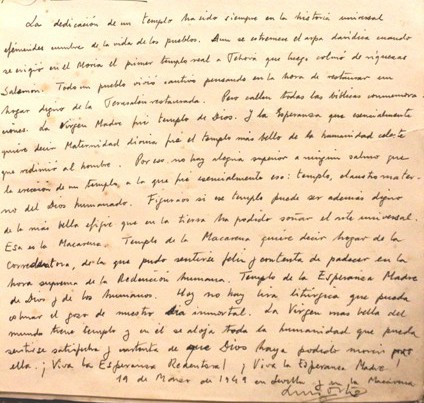 La dedicación de un templo ha sido siempre en la historia universal
efemérides cumbre de la vida de los pueblos. Aun se estremece el arpa davídica cuando
se erigió en el Moria el primer templo real a Jehová que luego colmó de riquezas
Salomón. Todo un pueblo vivió cautivo pensando en la hora de restaurar un
hogar digno de la Jerusalen restaurada. Pero callen todas las bíblicas conmemora-
ciones. La Virgen Madre fué templo de Dios. Y la Esperanza que esencialmente
quiere decir Maternidad divina fué el templo más bello de la humanidad celeste
que redimió al hombre. Por eso no hay alegria superior a ningun salmo que
la ereccion de un templo a la que fué esencialmente eso: templo, claustro mater-
no del Dios humanado. Figuraos si ese templo puede ser además digno
de la más bella efigie que en la tierra ha podido soñar el arte universal.
Esa es la Macarena. Templo de la Macarena quiere decir hogar de la
Corredentora, de la que pudo sentirse feliz y contenta de padecer en la
hora suprema de la Redención humana. Templo de la Esperanza Madre
de Dios y de los humanos. Hoy no hay lira litúrgica que pueda
el gozo de nuestro dia inmortal. La Virgen más bella del
mundo tiene templo y en el se aloja toda la humanidad que pueda
sentirse satisfecha y contenta de que Dios haya podido morir por
ella. ¡Viva la Esperanza Redentora! ¡Viva la Esperanza Madre!
19 de Marzo de 1949 en Sevilla y en la Macarena